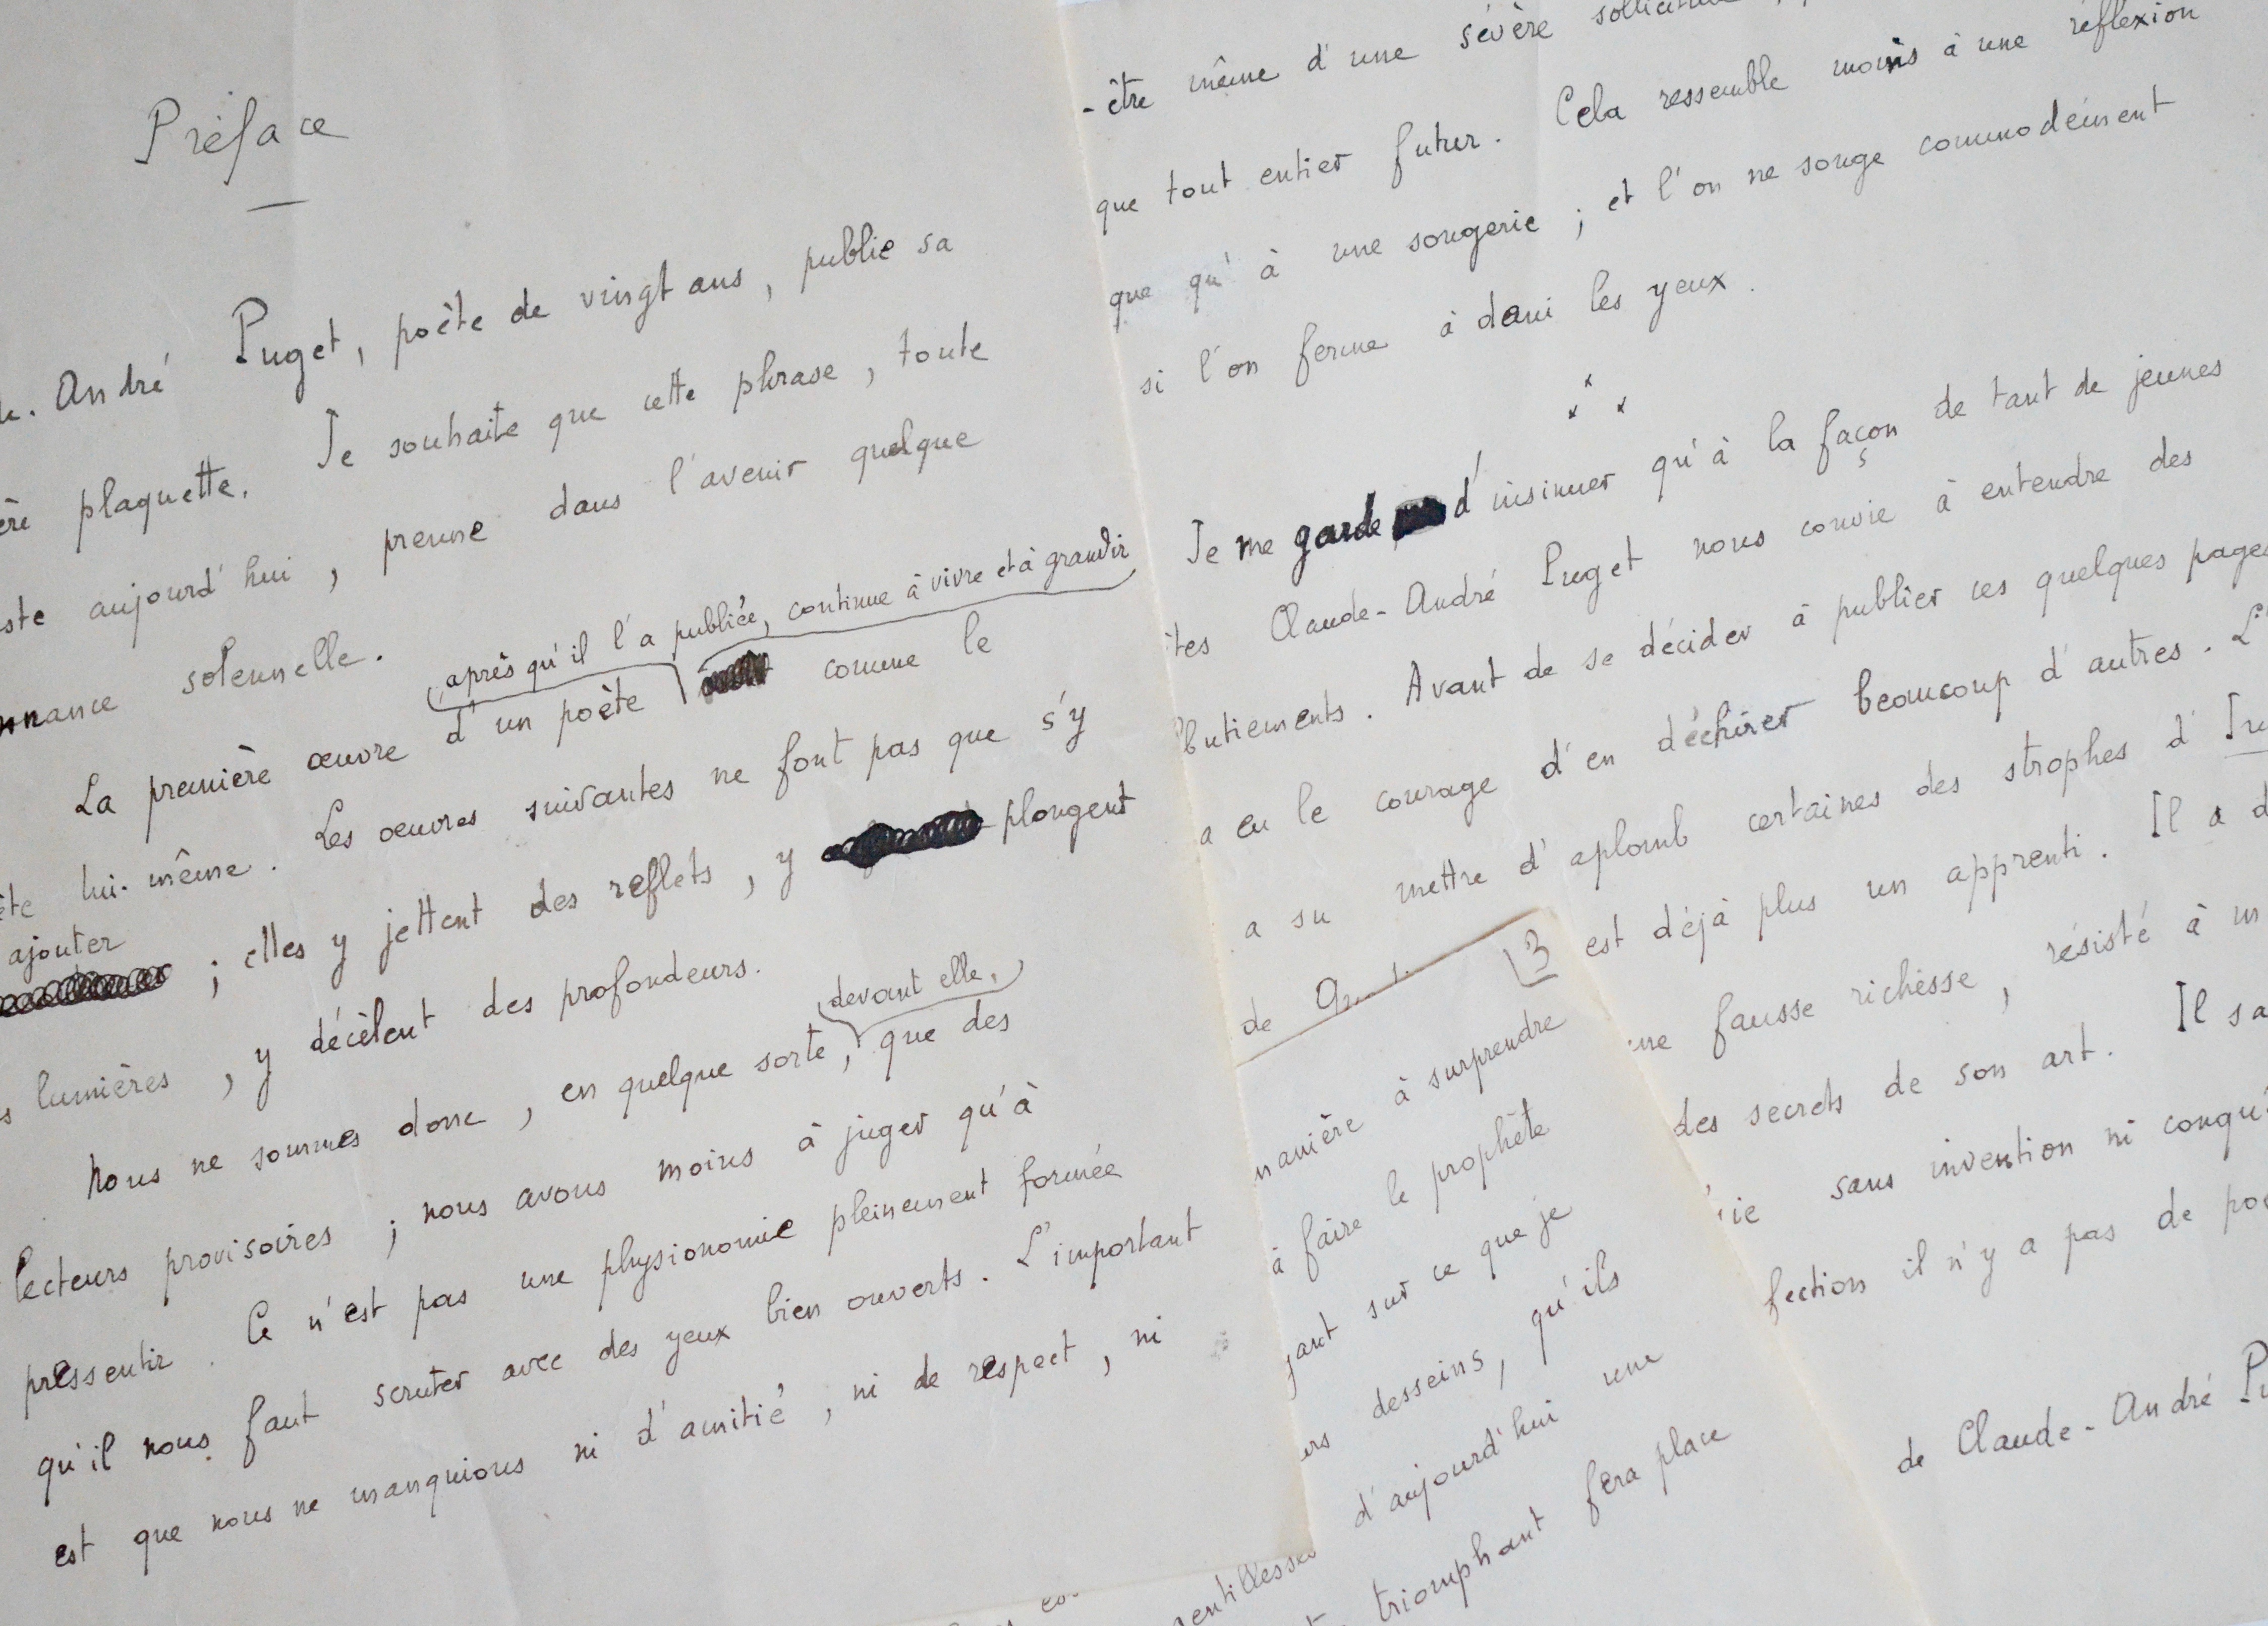 Préface
André Puget, poète de vingt ans, publie sa
plaquette. Je souhaite que cette phrase, toute
aujourd'hui, prenne dans l'avenir quelque
solennelle.
après qu'il l'a publiée, continue à vivre et à grandir
La première œuvre d'un poète comme le
lui-même. Les œuvres suivantes ne font pas que s'y
ajouter ; elles y jettent des reflets, y plongent
lumières, y décèlent des profondeurs.
devant elle,
Nous ne sommes donc, en quelque sorte, que des
lecteurs provisoires ; nous avons moins à juger qu'à
pressentir. Ce n'est pas une physionomie pleinement formée
qu'il nous faut scruter avec des yeux bien ouverts. L'important
est que nous ne manquions ni d'amitié, ni de respect, ni
-être même d'une sévère
que tout entier futur. Cela ressemble moins à une réflexion
que qu'à une songerie ; et l'on ne songe commodément
si l'on ferme à demi les yeux.
Je me garde d'insinuer qu'à la façon de tant de jeunes
Claude-André Puget nous convie à entendre des
butiements. Avant de se décider à publier ces quelques pages
a eu le courage d'en déchirer beaucoup d'autres.
a su mettre d'aplomb certaines des strophes d'
de est déjà plus un apprenti. Il a
fausse richesse, résisté à
des secrets de son art. Il
sans invention ni
fection il n'y a pas de
de Claude-André
3
manière à surprendre
à faire le prophète
sur ce que je
desseins, qu'ils
d'aujourd'hui une
triomphant fera place